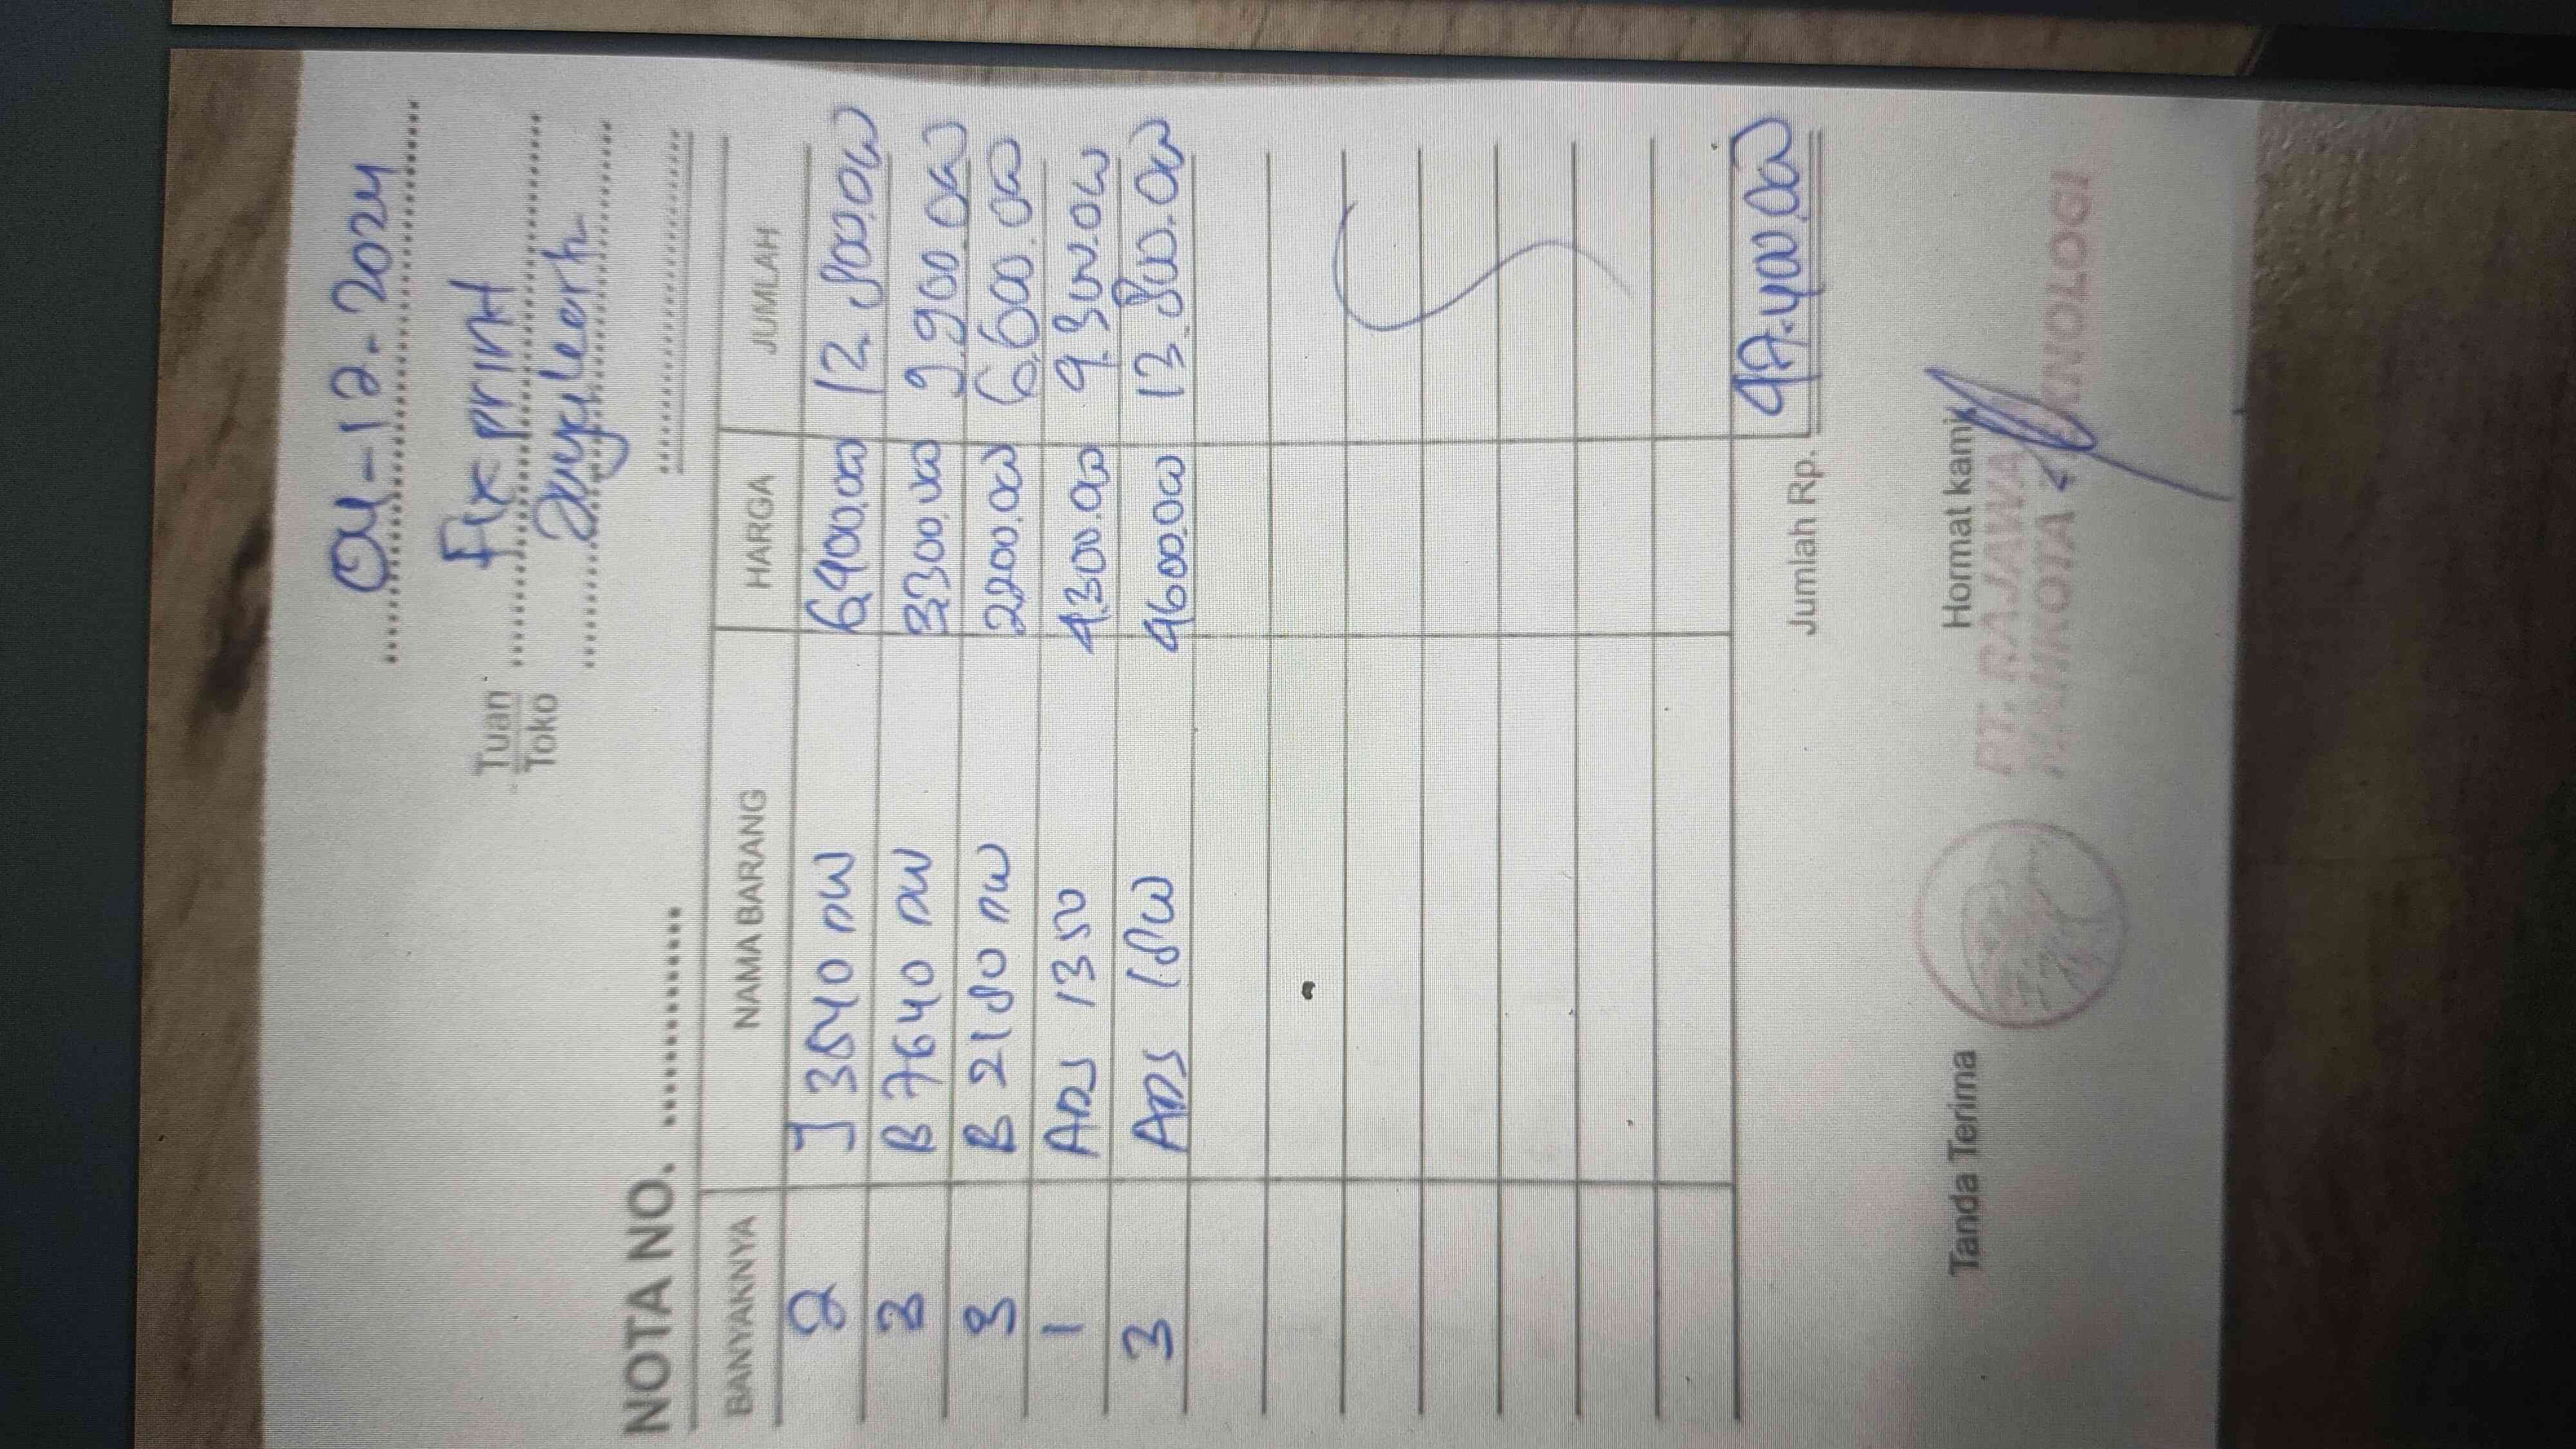 04-12-2024
Fixprint
Tuan
Toko
NOTA NO.
BANYAKNYA NAMA BARANG HARGA JUMLAH
2 J 3540 DW 6.400.000 12.800.000
3 B 7640 DW 3.300.000 9.900.000
3 B 2180 DW 2.200.000 6.600.000
1 ADS 1350 4.300.000 4.300.000
3 ADS 1800 4.600.000 13.800.000
Jumlah Rp. 47.400.000
Tanda Terima Hormat kami,
PT. RAJAWALI
MAHKOTA TEKNOLOGI